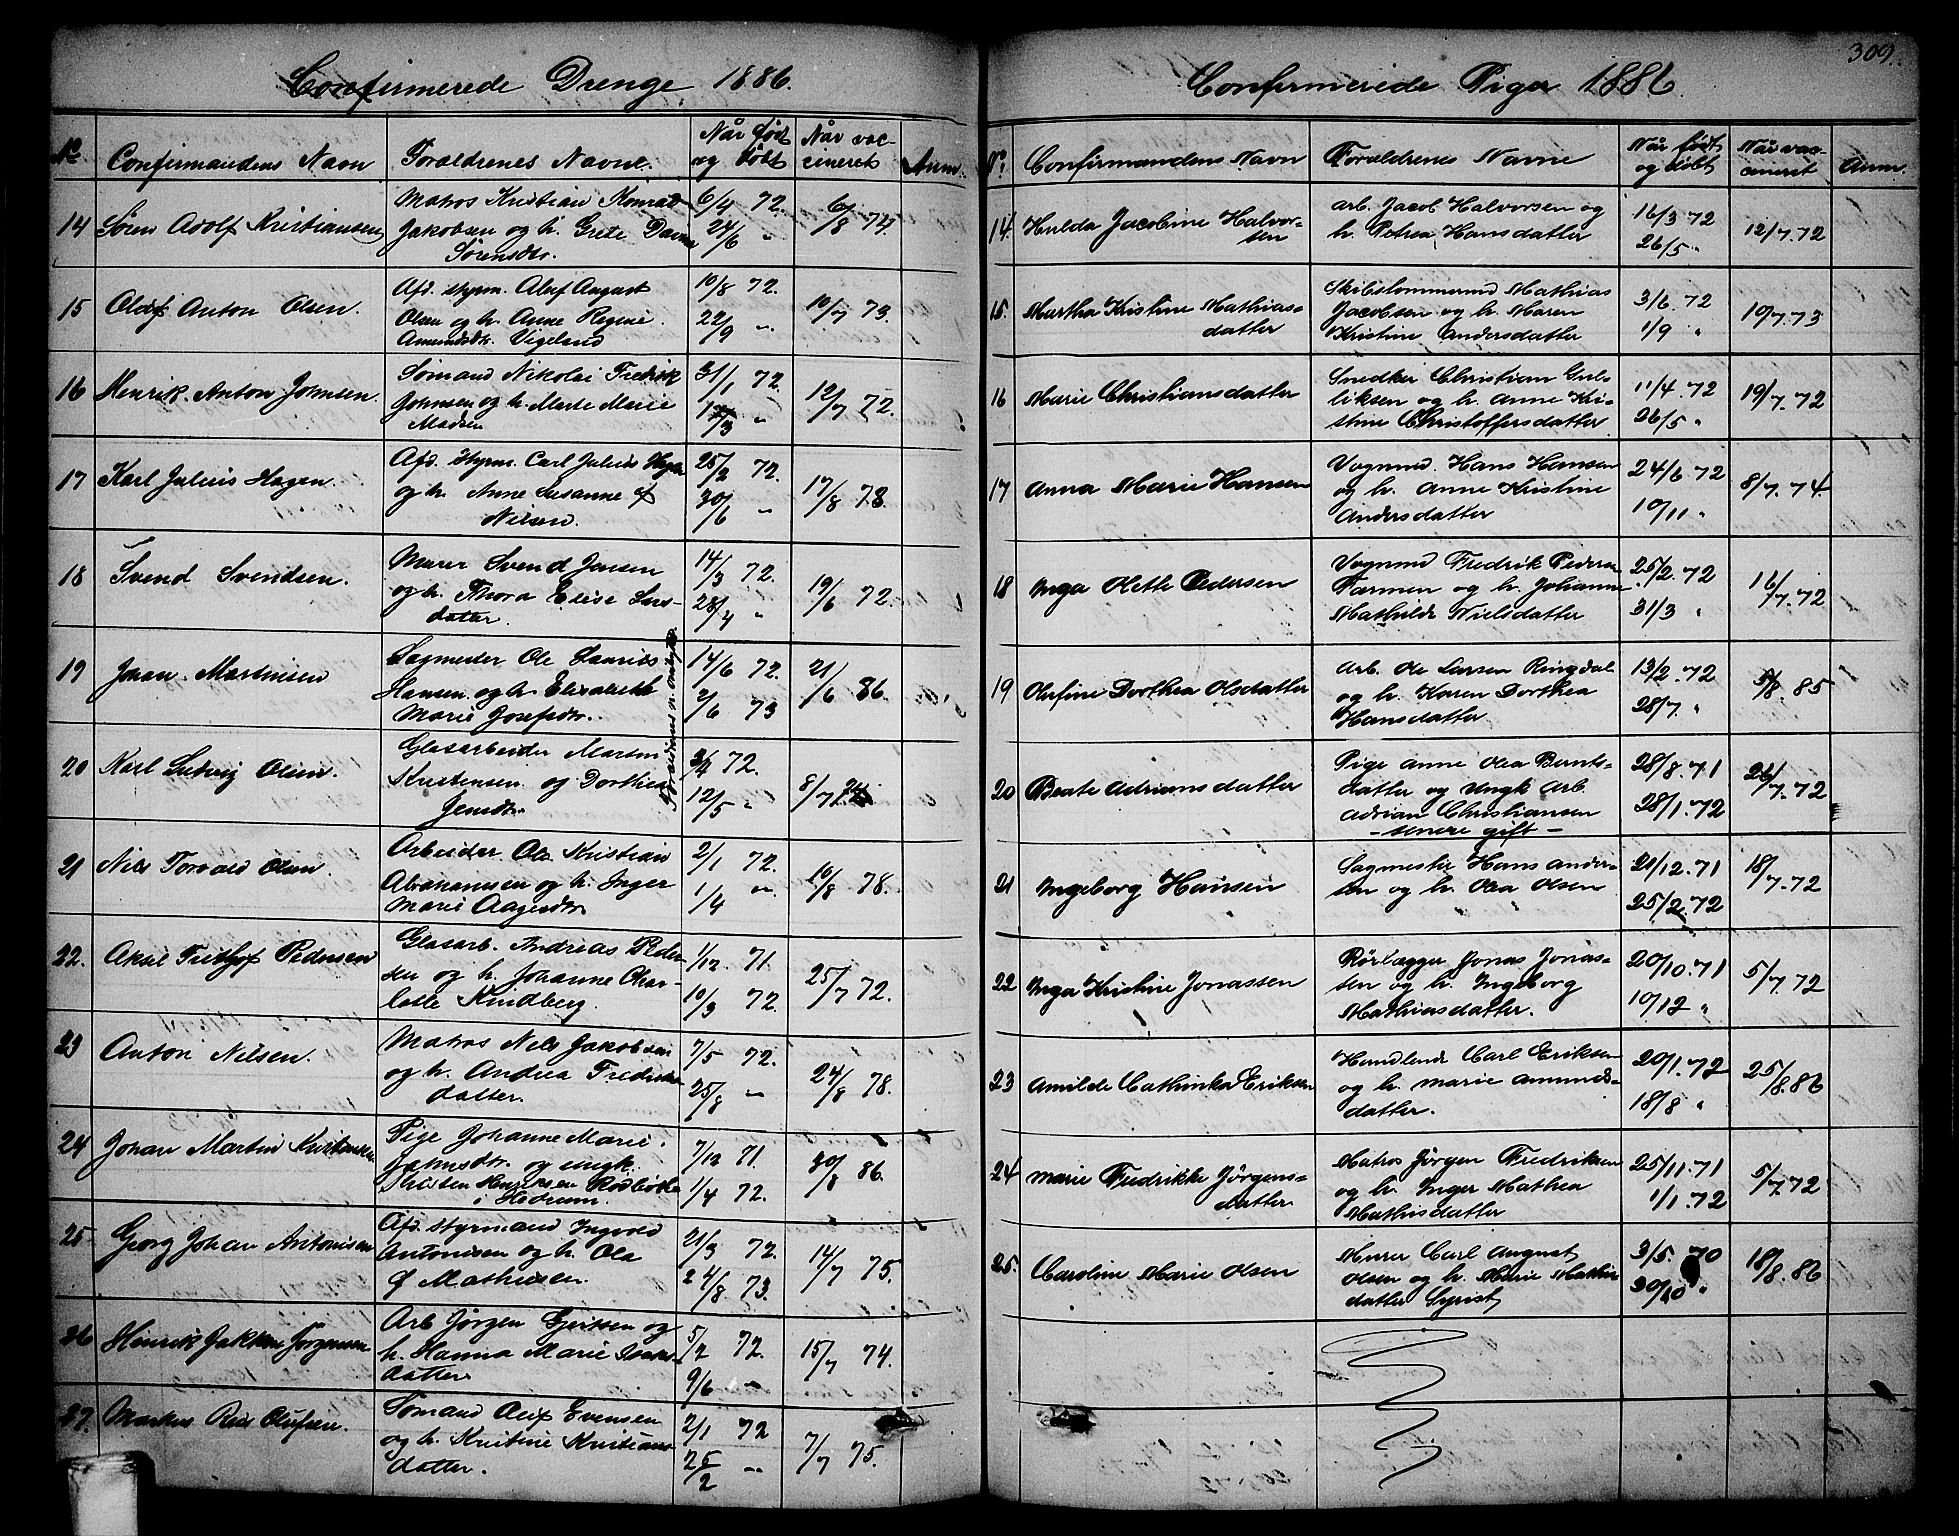 309.
Confirmerede Drenge 1886.
No Confirmandens Navn Forældrenes Navne. Når født og døbt Når vaccineret Anm.
14 Søren Adolf Kristiansen
Matros Kristian Konrad
Jakobsen og h. Grete
Sørensdtr.
6/4 72.
24/6 "
6/8 74.
15 Olaf Anton Olsen.
Afd. styrm. Aluf August
Olsen og h. Anne Regine
Amundsdtr. Vigeland
10/8 72.
22/9 "
10/7 73.
16 Henrik Anton Johnsen.
Sømand Nikolai Fredrik
Johnsen og h. Marte Marie
Madsen
31/1 72.
/3 "
12/7 72.
17 Karl Julius Hagen.
Afd. Styrm. Carl Julius Hagen
og h. Anne Susanne f
Nilsen.
25/2 72.
30/6 "
17/8 73.
18 Svend Svendsen.
Murer Svend Jensen
og h. Thora Elise Lars-
datter.
14/3 72.
28/4 "
19/6 72.
19 Johan Martinsen
Sagmester Ole Laurits
Hansen og h. Elisabeth
Marie Josefsdtr.
14/6 72.
2/6 73
21/6 86.
20 Karl Ludvig Olsen.
Glasarbeider Morten
Kristensen og Dorthea
Jensdtr.
Forældrenes n. ombyttet
3/4 72.
12/5 "
8/7
21 Nils Torvald Olsen.
Arbeider Ole Kristian
Abrahamsen og h. Inger
Marie Aagesdtr.
2/1 72.
1/4 "
10/8 78.
22. Aksel Frithjof Pedersen
Glasarb. Andreas Peder-
sen og h. Johanne Char-
lotte Kindberg.
1/12 71.
10/3 72.
25/7 72.
23 Anton Nilsen.
Matros Nils Jakobsen
og h. Andrea Fredriks-
datter.
7/5 72.
25/8 "
24/8 78.
24 Johan Martin Kristensen
Pige Johanne Marie
Johnsdtr. og ungk.
Kristen Henriksen Rødbøle
i Hedrum.
7/12 71.
1/4 72.
30/8 86.
25 Georg Johan Antonisen
Afd. styrmand Ingvald
Antonisen og h. Ola
f Mathisen.
21/3 72.
24/8 73.
14/7 75.
26 Henrik Jørgensen
Arb Jørgen Gjertsen og
h. Hanna Marie Isaks-
datter.
5/2 72.
9/6 "
15/7 74.
27. Markus Olufsen.
Sømand Oluf Evensen
og h. Kristine Kristians-
datter.
2/1 72
25/2 "
7/7 75.
Confirmerede Piger 1886.
No. Confirmandens Navn Forældrenes Navne Når født og døbt Når vaccineret Anm.
14. Hulda Jacobine Halvor-
sen
arb. Jacob Halvorsen og
h. Petrea Hansdatter
16/3 72
26/5 "
12/7.72
15. Martha Kristine Mathias-
datter
Skibstømmermd Mathias
Jacobsen og h. Maren
Kristine Andersdatter
3/6.72
1/9 "
10/7.73
16 Marie Christiansdatter
Snedker Christian Gul-
liksen og h. Anne Kri-
stine Christoffersdatter
11/4.72
26/5 "
19/7.72
17 Anna Marie Hansen
Vognmd. Hans Hansen
og h. Anne Kristine
Andersdatter
24/6 72
10/11 "
8/7.74
18 Inga Olette Pedersen
Vognmd Fredrik Pedersen
Farmen og h. Johanne
Mathilde Nielsdatter
25/2.72
31/3 "
16/7.72
19 Olufine Dorthea Olsdatter
Arb. Ole Larsen Ringdal
og h. Karen Dorthea
Hansdatter.
13/2.72
28/7 "
5/8.85
20 Beate Adriansdatter
Pige Anne Olea Bernts-
datter og Ungk Arb.
Adrian Christiansen
- senere gift -
28/8.71
28/1.72
26/7.72
21 Ingeborg Hansen
Sagmester Hans Ander-
sen og h. Olea Olsen
21/12.71
25/2.72
18/7.72
22 Inga Kristine Jonassen
Rørlægger Jonas Jonas-
sen og h. Ingeborg
Mathiasdatter.
20/10.71
10/12 "
5/7.72
23 Amilde Cathinka Eriksen
Handlende Carl Eriksen
og h. Marie Amunds-
datter.
20/1.72
18/8 "
25/8.86
24 Marie Fredrikke Jørgens-
datter
Matros Jørgen Fredriksen
og h. Inger Mathea
Mathisdatter
25/11.71
1/1.72
5/7.72
25. Caroline Marie Olsen
Murer Carl August
Olsen og h. Marie Mathis-
datter Syrist
3/5.70
30/10 "
18/8.86